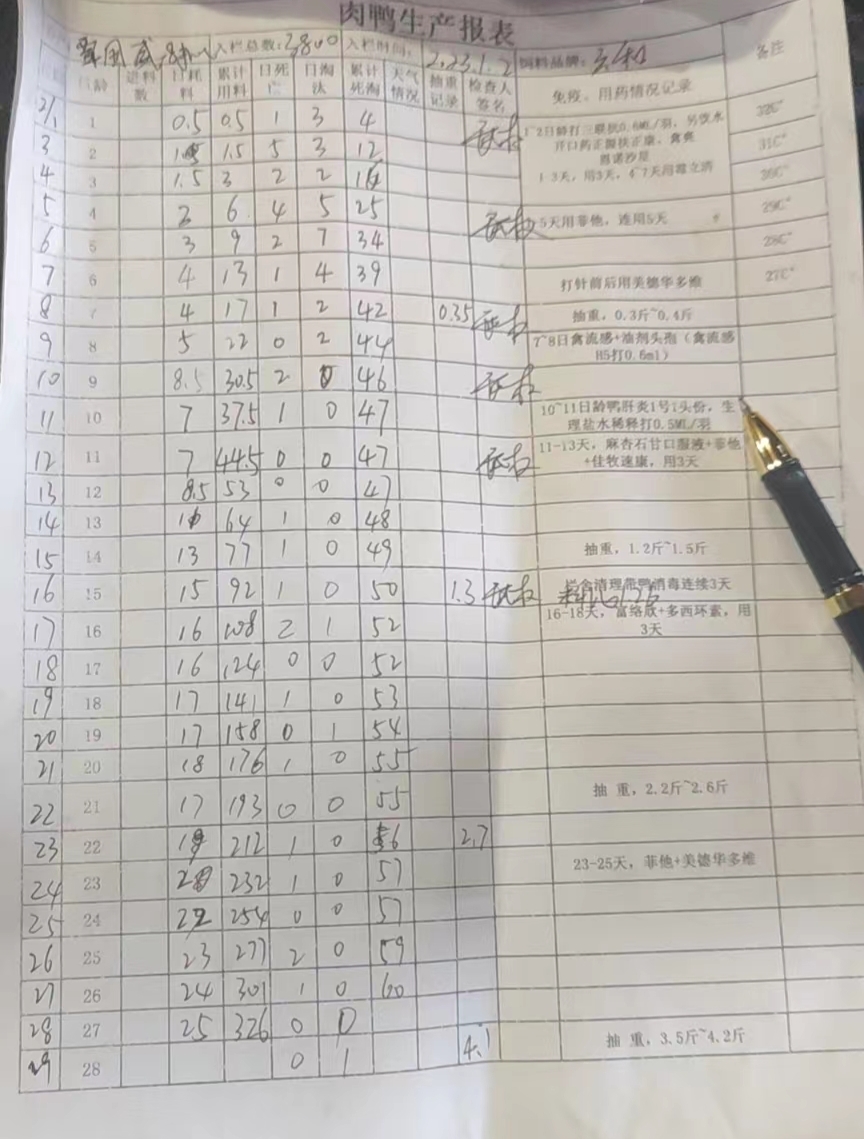 肉鸭生产报表
入栏总数:3800 入栏时间: 2.23.1.2 饲料品牌: 备注
日龄 进料数 日耗料 累计用料 日死亡 日淘汰 累计死淘 天气情况 抽重记录 检查人签名 免疫、用药情况记录
2/1 1 0.5 0.5 1 3 4 32C°
1~2日龄打三联抗0.6ML/羽，另饮水
3 2 1.5 5 3 12 开口药正源扶正康，禽爽 31C°
恩诺沙星
4 3 1.5 3 2 2 16 1-3天，用3天，4~7天用 30C°
5 4 3 6 4 5 25 5天用菲他，连用5天 29C°
6 5 3 9 2 7 34 28C°
7 6 4 13 1 4 39 打针前后用美德华多维 27C°
8 7 4 17 1 2 42 0.35 抽重，0.3斤~0.4斤
9 8 5 22 0 2 44 7~8日禽流感+油剂头孢（禽流感
H5打0.6ml）
10 9 8.5 30.5 2 0 46
11 10 7 37.5 1 0 47 10~11日龄鸭肝炎1号1头份，生
理盐水稀释打0.5ML/羽
12 11 7 44.5 0 0 47 11-13天，麻杏石甘口服液+菲他
+佳牧速康，用3天
13 12 8.5 53 0 0 47
14 13 64 1 0 48
15 14 13 77 1 0 49 抽重，1.2斤~1.5斤
16 15 15 92 1 0 50 1.3 栏舍清理带鸭消毒连续3天
17 16 16 108 2 1 52 16-18天，富络欣+多西环素，用
3天
18 17 16 124 0 0 52
19 18 17 141 1 0 53
20 19 17 158 0 1 54
21 20 18 176 1 0 55
22 21 17 193 0 0 55 抽 重，2.2斤~2.6斤
23 22 19 212 1 0 56 2.7
24 23 20 232 1 0 57 23-25天，菲他+美德华多维
25 24 22 254 0 0 57
26 25 23 277 2 0 59
27 26 24 301 1 0 60
28 27 25 326 0 0 抽 重，3.5斤~4.2斤
29 28 0 1 4.1